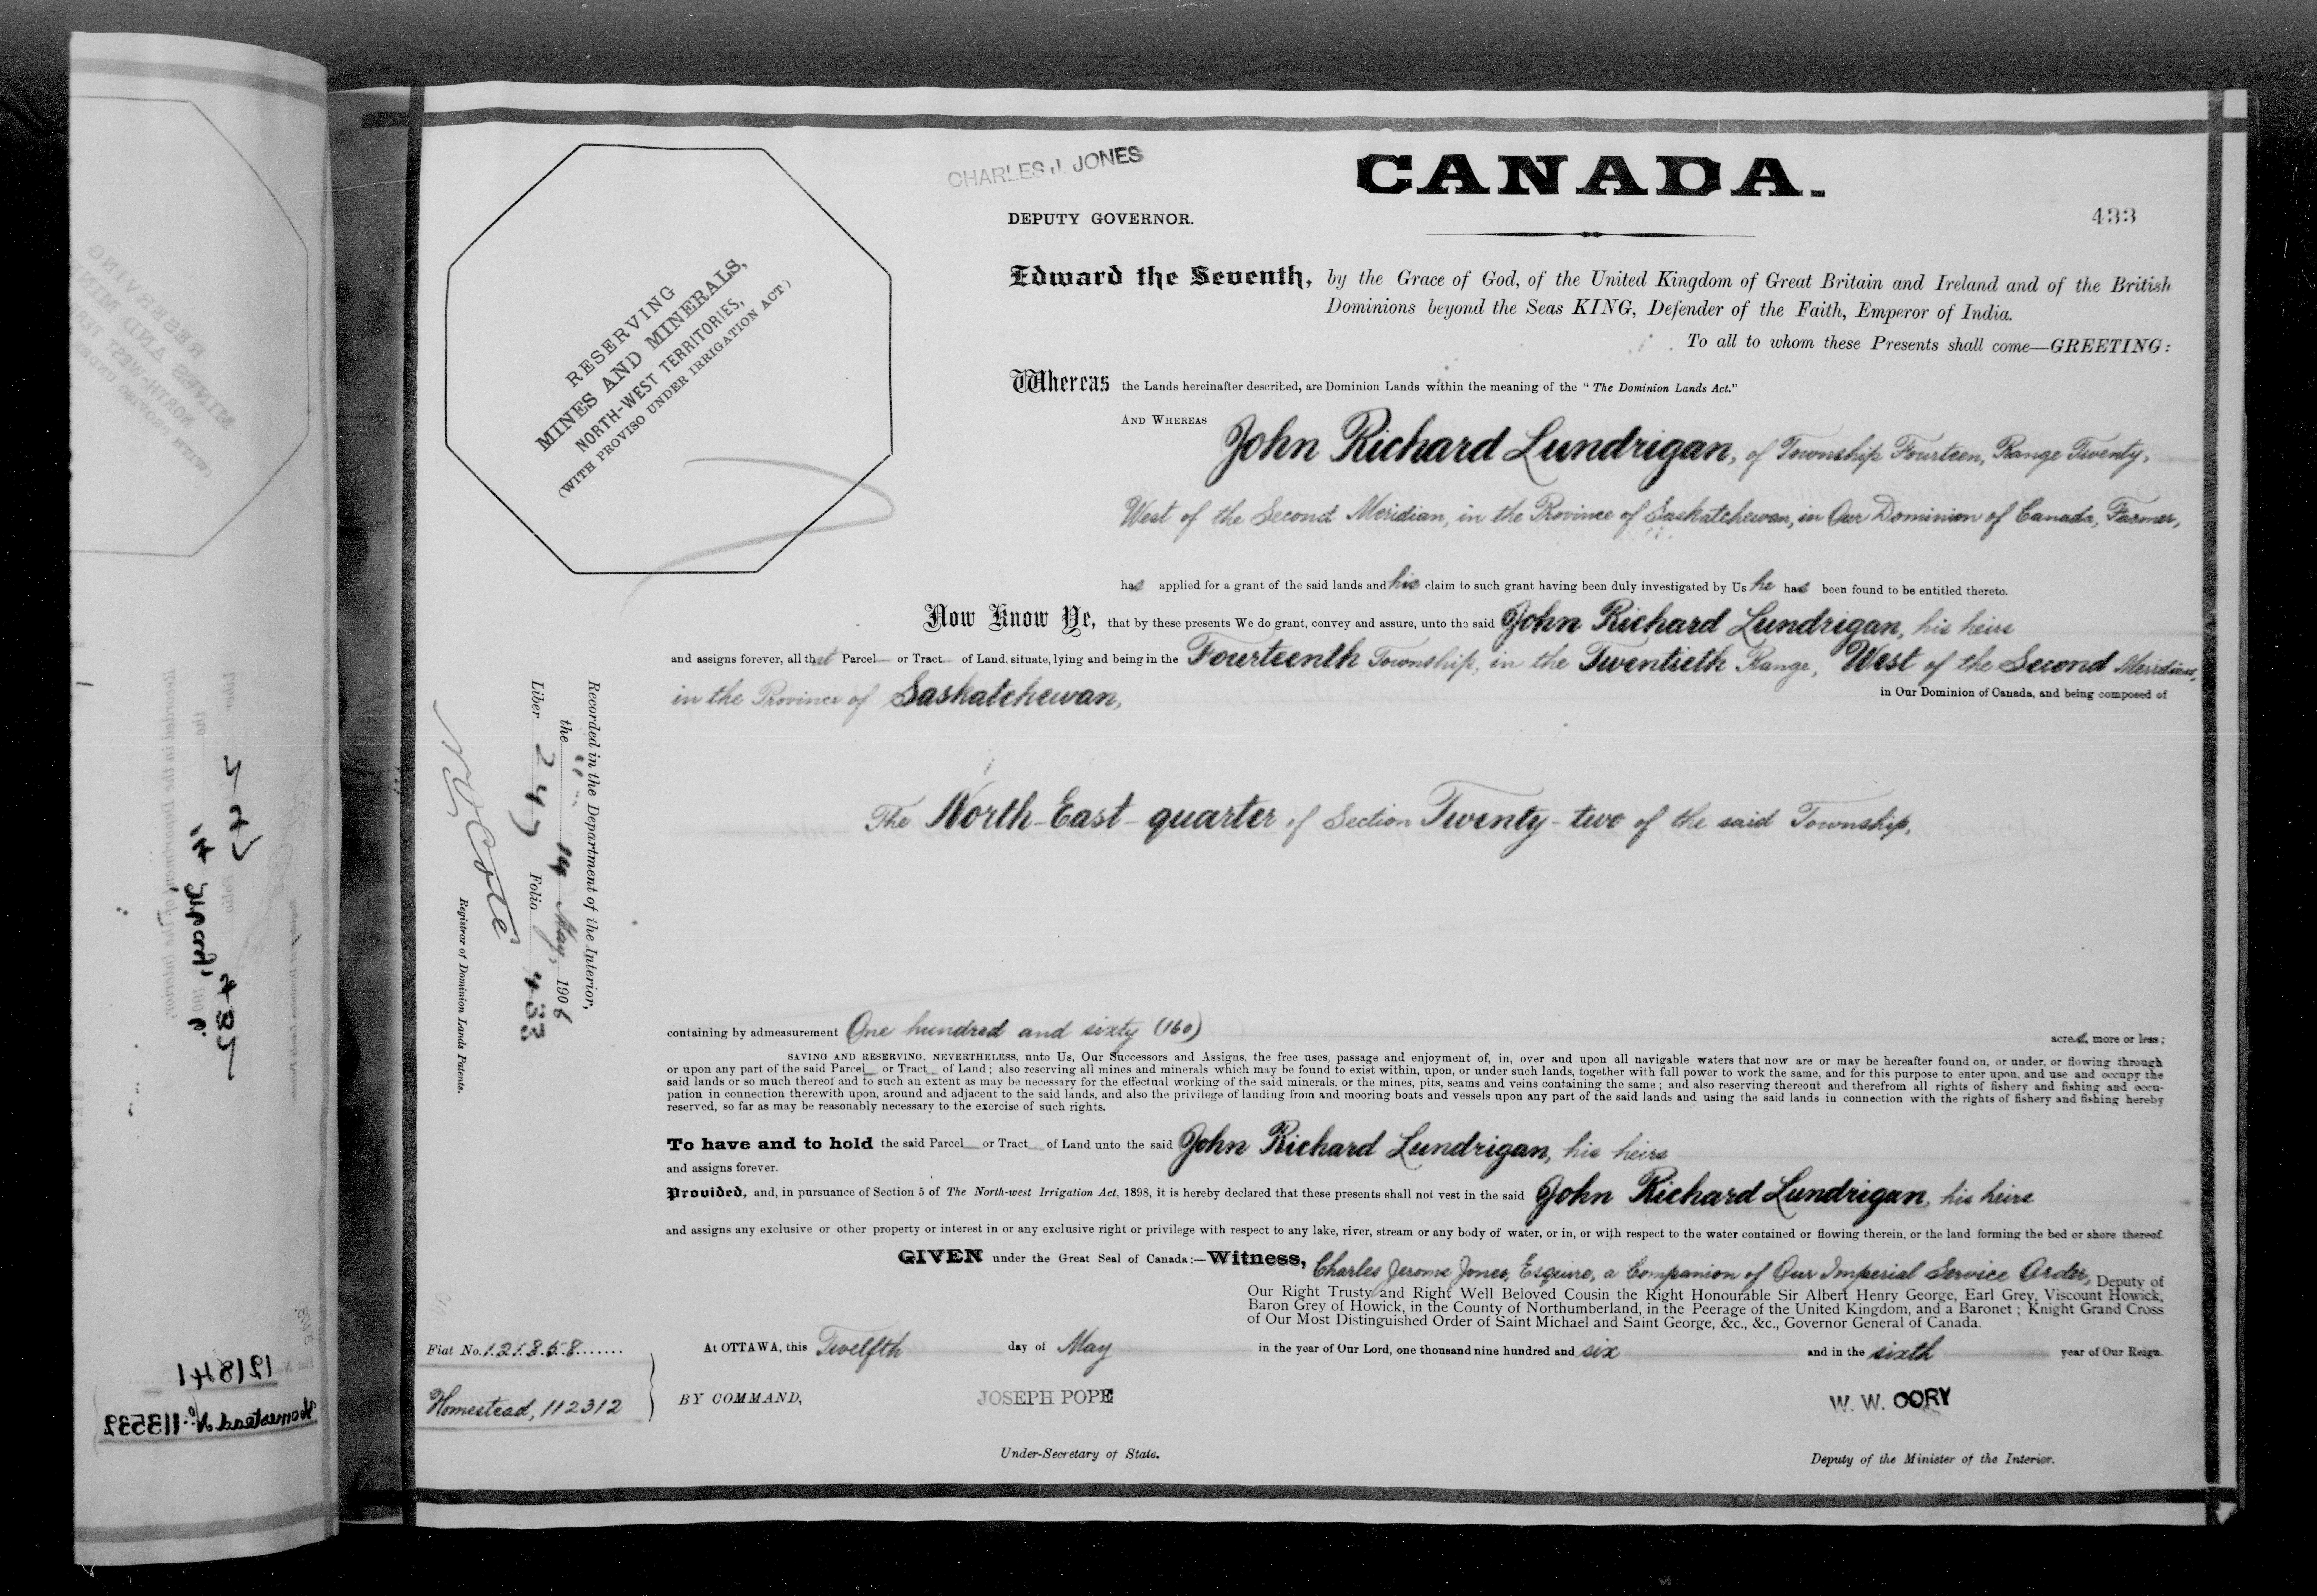 CHARLES J. JONES
CANADA.
DEPUTY GOVERNOR.
433
RESERVING
MINES AND MINERALS,
NORTH-WEST TERRITORIES,
(WITH PROVISO UNDER IRRIGATION ACT)
Edward the Seventh, by the Grace of God, of the United Kingdom of Great Britain and Ireland and of the British
Dominions beyond the Seas KING, Defender of the Faith, Emperor of India.
To all to whom these Presents shall come—GREETING:
Whereas the Lands hereinafter described, are Dominion Lands within the meaning of the "The Dominion Lands Act."
AND WHEREAS John Richard Lundrigan, of Township Fourteen, Range Twenty,
West of the Second Meridian, in the Province of Saskatchewan, in Our Dominion of Canada, Farmer,
has applied for a grant of the said lands and his claim to such grant having been duly investigated by Us he has been found to be entitled thereto.
Now Know Ye, that by these presents We do grant, convey and assure, unto the said John Richard Lundrigan, his heirs
and assigns forever, all that Parcel or Tract of Land, situate, lying and being in the Fourteenth Township, in the Twentieth Range, West of the Second Meridian,
in the Province of Saskatchewan, in Our Dominion of Canada, and being composed of
The North-East-quarter of Section Twenty-two of the said Township,
Recorded in the Department of the Interior,
the 14 May, 1906
Liber 247 Folio 433
N O Coté
Registrar of Dominion Lands Patents.
containing by admeasurement One hundred and sixty (160) acres, more or less;
SAVING AND RESERVING, NEVERTHELESS, unto Us, Our Successors and Assigns, the free uses, passage and enjoyment of, in, over and upon all navigable waters that now are or may be hereafter found on, or under, or flowing through
or upon any part of the said Parcel or Tract of Land; also reserving all mines and minerals which may be found to exist within, upon, or under such lands, together with full power to work the same, and for this purpose to enter upon, and use and occupy the
said lands or so much thereof and to such an extent as may be necessary for the effectual working of the said minerals, or the mines, pits, seams and veins containing the same; and also reserving thereout and therefrom all rights of fishery and fishing and occu-
pation in connection therewith upon, around and adjacent to the said lands, and also the privilege of landing from and mooring boats and vessels upon any part of the said lands and using the said lands in connection with the rights of fishery and fishing hereby
reserved, so far as may be reasonably necessary to the exercise of such rights.
To have and to hold the said Parcel or Tract of Land unto the said John Richard Lundrigan, his heirs
and assigns forever.
Provided, and, in pursuance of Section 5 of The North-west Irrigation Act, 1898, it is hereby declared that these presents shall not vest in the said John Richard Lundrigan, his heirs
and assigns any exclusive or other property or interest in or any exclusive right or privilege with respect to any lake, river, stream or any body of water, or in, or with respect to the water contained or flowing therein, or the land forming the bed or shore thereof.
GIVEN under the Great Seal of Canada:—Witness, Charles Jerome Jones, Esquire, a Companion of Our Imperial Service Order, Deputy of
Our Right Trusty and Right Well Beloved Cousin the Right Honourable Sir Albert Henry George, Earl Grey, Viscount Howick,
Baron Grey of Howick, in the County of Northumberland, in the Peerage of the United Kingdom, and a Baronet; Knight Grand Cross
of Our Most Distinguished Order of Saint Michael and Saint George, &c., &c., Governor General of Canada.
Fiat No. 121858
At OTTAWA, this Twelfth day of May in the year of Our Lord, one thousand nine hundred and six and in the sixth year of Our Reign.
Homestead, 112312
BY COMMAND,
JOSEPH POPE
W. W. CORY
Under-Secretary of State.
Deputy of the Minister of the Interior.
121841
Homestead No. 113539